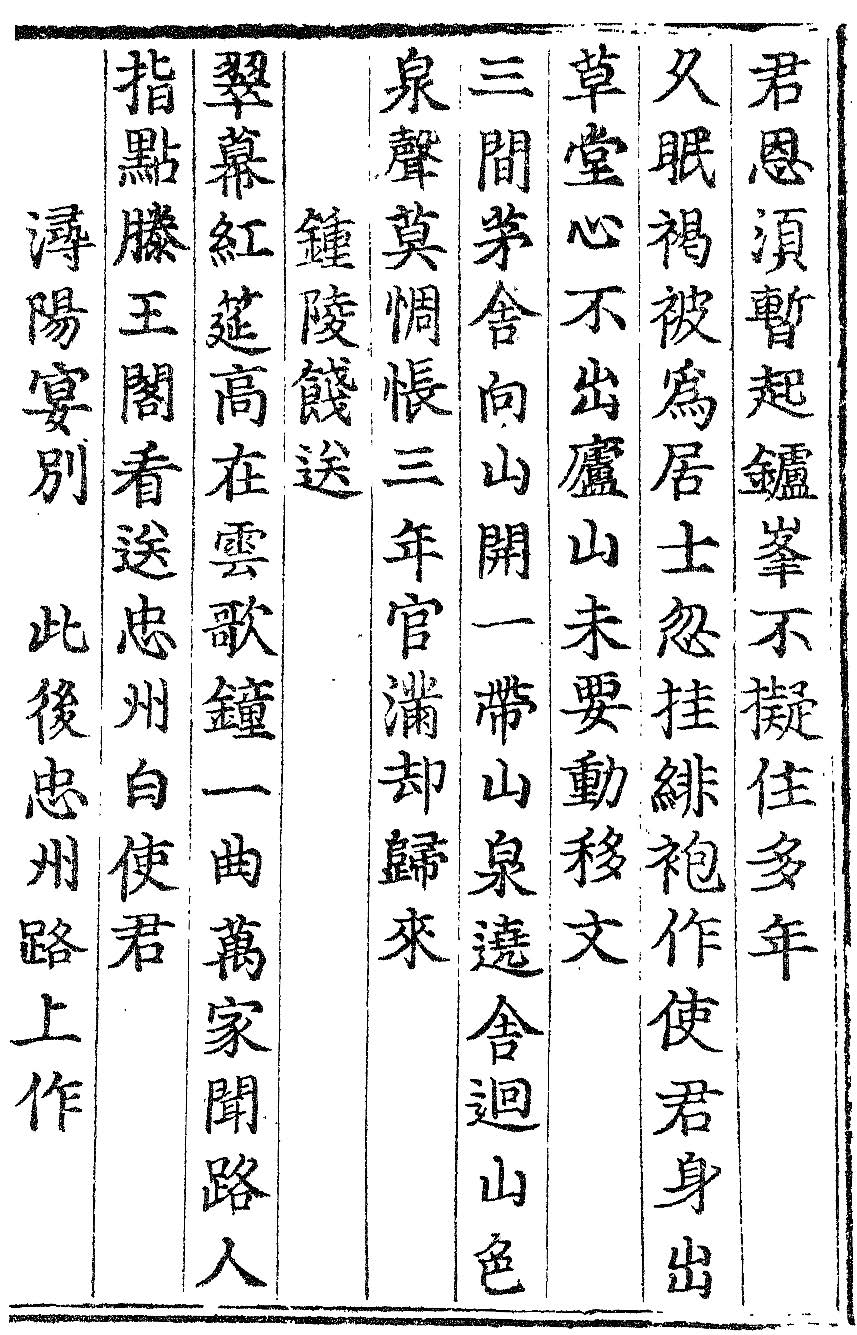 君恩須暫起鑪峯不擬住多年
久眠褐被爲居士忽挂緋袍作使君身出
草堂心不出廬山未要動移文
三間茅舍向山開一帶山泉遶舍迴山色
泉聲莫惆悵三年官滿却歸來
鍾陵餞送
翠幕紅筵高在雲歌鐘一曲萬家聞路人
指點滕王閣看送忠州白使君
潯陽宴別　此後忠州路上作